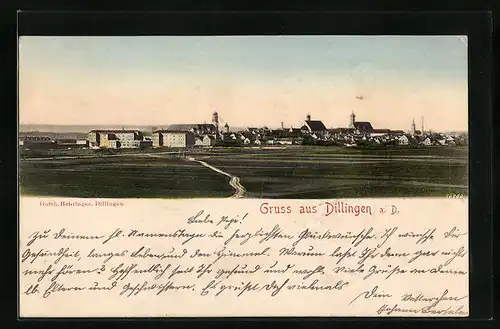 Gebr. Behringer, Dillingen
Gruss aus Dillingen a. D.
Liebe Pepi!
zu Deinem hl. Namenstage die herzlichsten Glückwünsche. Ich wünsche Dir
Gesundheit, langes Leben und den Himmel. Warum laßt Ihr denn gar nichts
mehr hören? Hoffentlich seid Ihr gesund und wohl. Viele Grüße an Deine
lb. Eltern und Geschwister. Es grüßt Dich vielmals
Dein
Johann